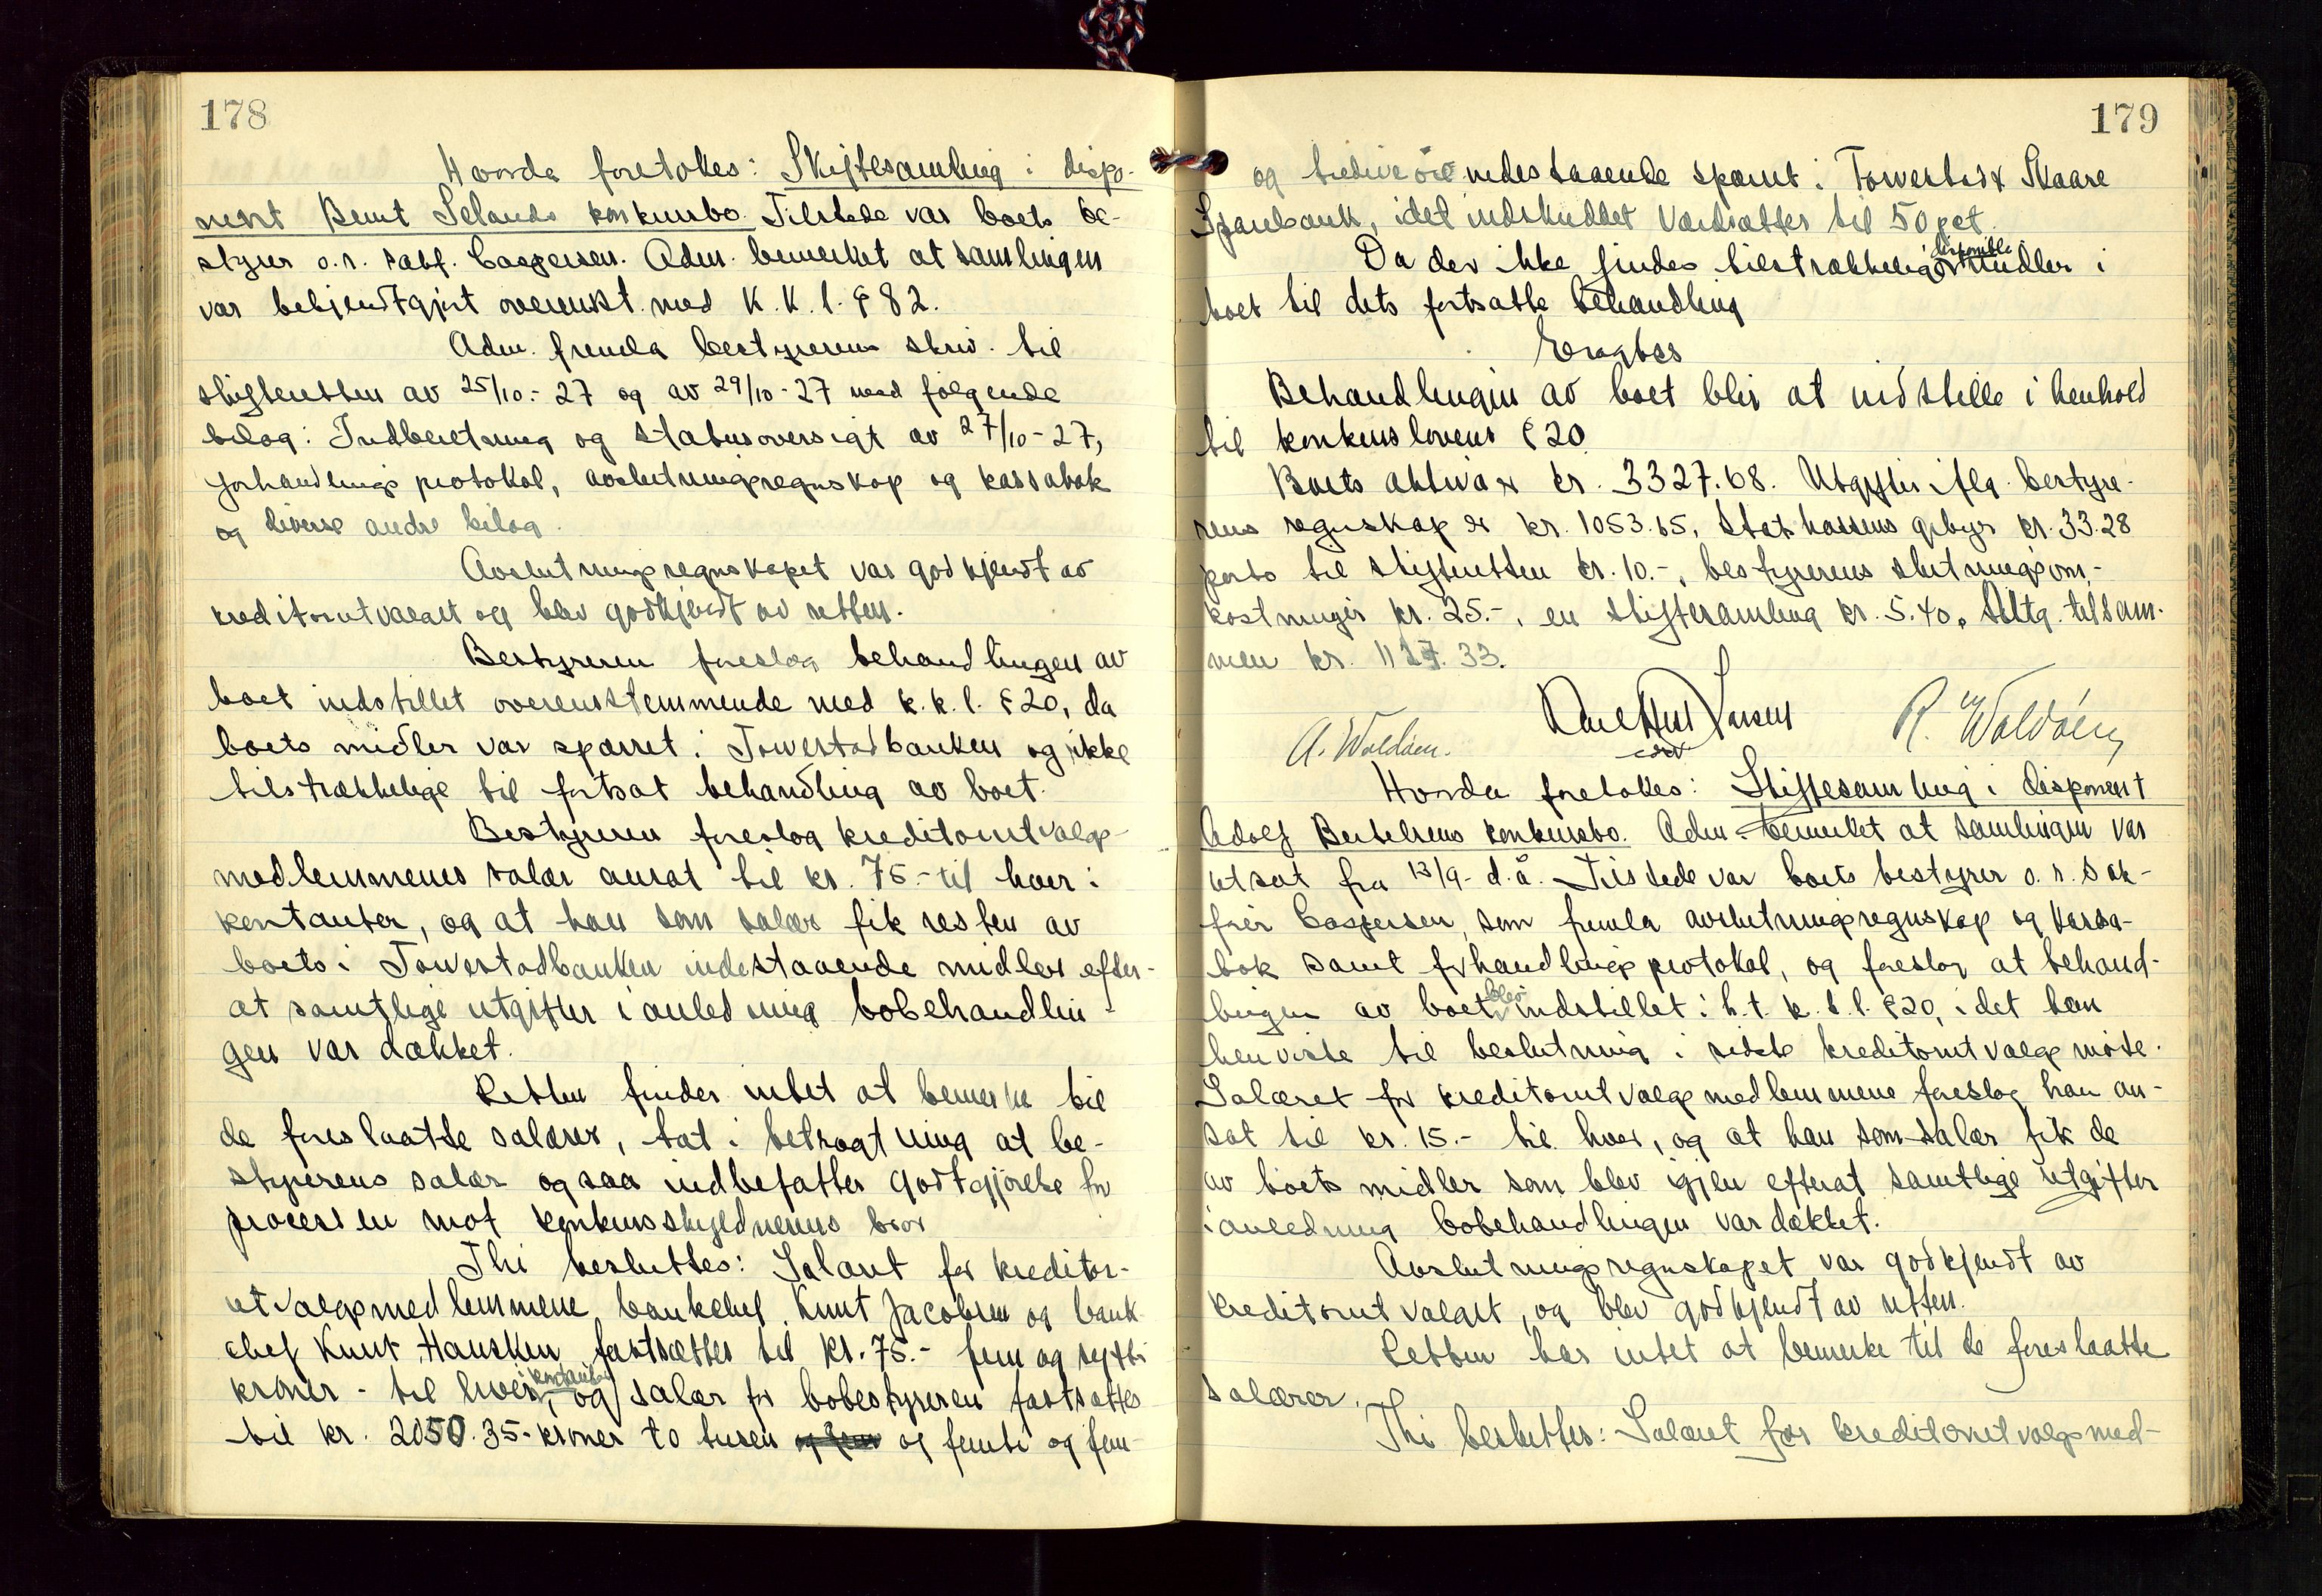 178
Hvorda foretokes: Skiftesamling i dispo-
nent Bernt Selands konkursbo. Tilstede var boets be-
styrer o.r. sakf. Caspersen. Adm. bemerket at samlingen
var bekjendtgjort overenst. med K. K. l. § 82.
Adm. fremla bestyrerens skriv. til
skifteretten av 25/10.-27 og av 29/10-27 med følgende
bilag: Indberetning og statusoversigt av 27/10-27,
forhandlings protokol, avslutningsregnskap og kassabok
og diverse andre bilag.
Avslutningsregnskapet var godkjendt av
kreditorutvalget og blev godkjendt av retten.
Bestyreren foreslog behandlingen av
boet indstillet overensstemmende med k.k.l. §20, da
boets midler var sparret i Torvestadbanken og ikke
tilstrækkelige til fortsat behandling av boet.
Bestyreren foreslog kreditorutvalgs-
medlemmenes salær ansat til kr. 75.- til hver i
kontanter, og at han som salær fik resten av
boets i Torvestadbanken indestaaende midler efter-
at samtlige utgifter i anledning bobehandlin-
gen var dækket.
Retten finder intet at bemerke til
de foreslaatte salærer, tat i betragtning at be-
styrerens salær ogsaa indbefatter godtgjørelse for
processen mot konkursskyldnerens bror
Thi besluttes: Salæret for kreditor-
utvalgsmedlemmene banksjef Knut Jacobsen og bank
chef Knut Hausken fastsættes til kr. 75.- fem og sytti
kroner - til hver, kontanter og salær for bobestyreren fastsættes
til kr. 2050.35- kroner to tusen og femti og fem-
179
og tredive øre indestaaende sparret i Torvestad & Skaare
Sparebank, idet indskuddet værdsættes til 50 pct.
Da der ikke findes tilstrækkelig disponible midler i
boet til dets fortsatte behandling
Eragtes
Behandlingen av boet blir at indstille i henhold
til konkurslovens § 20.
Boets aktiva er kr. 3327.68. Utgifter iflg. bestyre-
rens regnskap er kr. 1053.65, Statskassens gebyr kr. 33.28
porto til skifteretten kr. 10.-, bestyrerens slutningsom-
kostninger kr. 25.-, en skiftesamling kr. 5.40. Altg. tilsam-
men kr. 1127.33.
A. Waldøen. R. Waldøen
Hvorda foretokes: Skiftesamling i disponent
Adolf Bertelsens konkursbo. Adm. bemerket at samlingen var
utsat fra 13/9- d.å. Tilstede var boets bestyrer o.r. sak-
fører Caspersen, som fremla avslutningsregnskap og kassa-
bok samt forhandlings protokol, og foreslog at behand-
lingen av boet blev indstillet i h.t. k.k.l. §20, idet han
henviste til beslutning i sidste kreditorutvalgs møte.
Salæret for kreditorutvalgsmedlemmene foreslog han an-
sat til kr. 15.- til hver, og at han som salær fik de
av boets midler som blev igjen efterat samtlige utgifter
i anledning bobehandlingen var dækket.
Avslutningsregnskapet var godkjendt av
kreditorutvalget, og blev godkjendt av retten.
Retten har intet at bemerke til de foreslaatte
salærer.
Thi besluttes: Salæret for kreditorutvalgsmed-